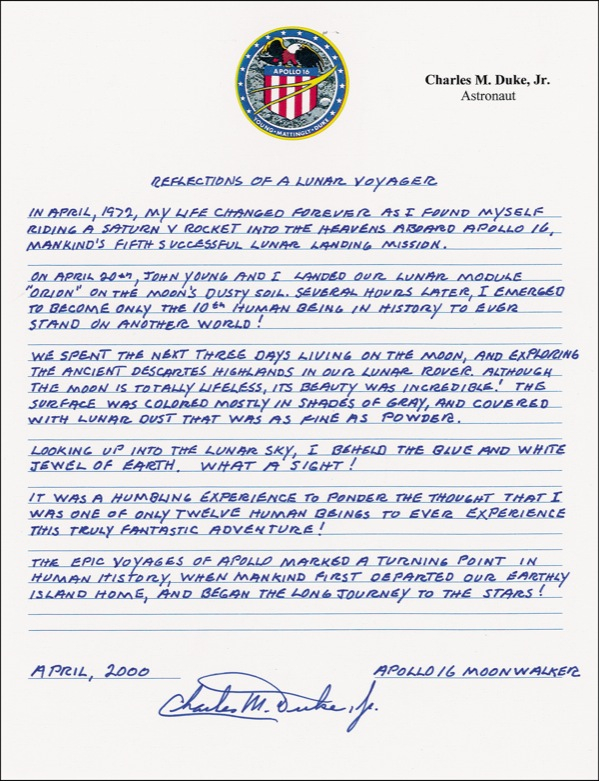 APOLLO 16
YOUNG • MATTINGLY • DUKE
Charles M. Duke, Jr.
Astronaut
REFLECTIONS OF A LUNAR VOYAGER
IN APRIL, 1972, MY LIFE CHANGED FOREVER AS I FOUND MYSELF
RIDING A SATURN V ROCKET INTO THE HEAVENS ABOARD APOLLO 16,
MANKIND'S FIFTH SUCCESSFUL LUNAR LANDING MISSION.
ON APRIL 20th, JOHN YOUNG AND I LANDED OUR LUNAR MODULE
"ORION" ON THE MOON'S DUSTY SOIL. SEVERAL HOURS LATER, I EMERGED
TO BECOME ONLY THE 10th HUMAN BEING IN HISTORY TO EVER
STAND ON ANOTHER WORLD!
WE SPENT THE NEXT THREE DAYS LIVING ON THE MOON, AND EXPLORING
THE ANCIENT DESCARTES HIGHLANDS IN OUR LUNAR ROVER. ALTHOUGH
THE MOON IS TOTALLY LIFELESS, ITS BEAUTY WAS INCREDIBLE! THE
SURFACE WAS COLORED MOSTLY IN SHADES OF GRAY, AND COVERED
WITH LUNAR DUST THAT WAS AS FINE AS POWDER.
LOOKING UP INTO THE LUNAR SKY, I BEHELD THE BLUE AND WHITE
JEWEL OF EARTH. WHAT A SIGHT!
IT WAS A HUMBLING EXPERIENCE TO PONDER THE THOUGHT THAT I
WAS ONE OF ONLY TWELVE HUMAN BEINGS TO EVER EXPERIENCE
THIS TRULY FANTASTIC ADVENTURE!
THE EPIC VOYAGES OF APOLLO MARKED A TURNING POINT IN
HUMAN HISTORY, WHEN MANKIND FIRST DEPARTED OUR EARTHLY
ISLAND HOME, AND BEGAN THE LONG JOURNEY TO THE STARS!
APRIL, 2000 APOLLO 16 MOONWALKER
Charles M. Duke, Jr.